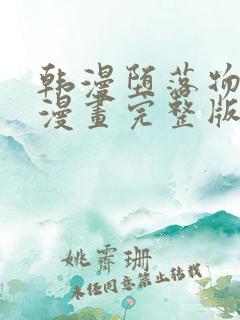 韩漫堕落物
漫畫完整版
姚霁珊
未经同意禁止转载